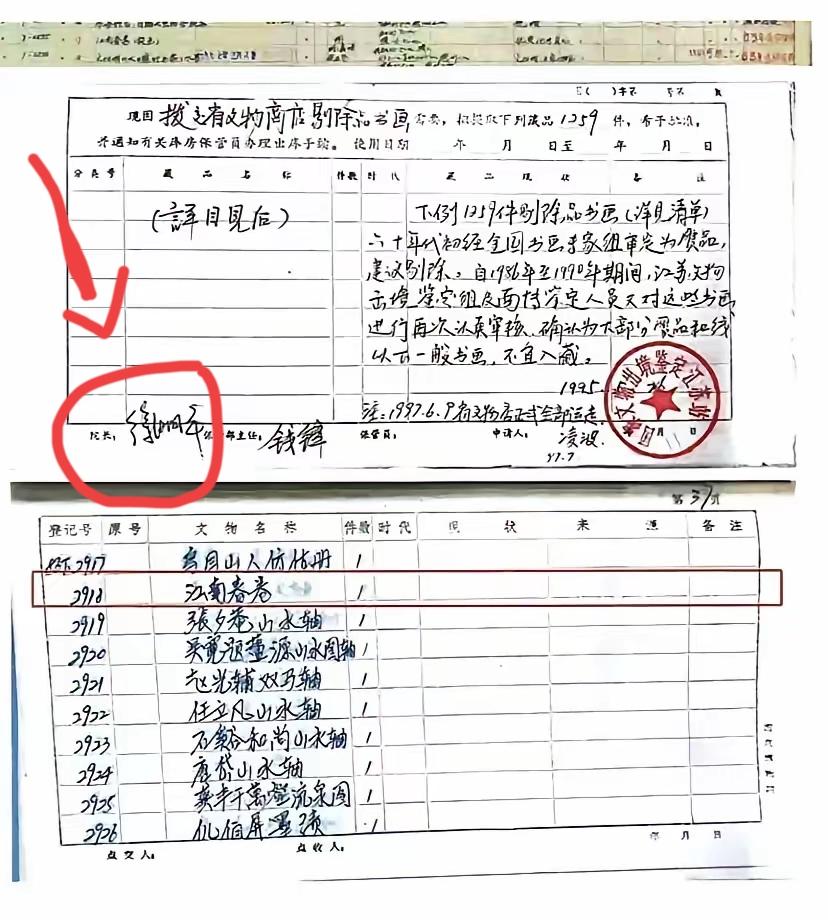 现因 拨交省文物商店剔除品书画 需要，拟提取下列藏品 1259 件，希予批准，
并通知有关库房保管员办理出库手续。 使用日期 年 月 日至 年 月 日
分类号 藏品名称 件数 时代 藏品现状 备注
（詳目見后）
下列1259件剔除品书画（详見清单）
六十年代初经全国书画专家组审定为赝品，
建议剔除。自1986年至1990年期间，江苏文物
出境鉴定组及面持鉴定人员又对这些书画
进行再次认真审核，确认为大部分赝品和线
以下一般书画，不宜入藏。
1995.
注：1997.6.9省文物店正式全部运走
院长： 徐湖平 保管部主任： 钱锋 保管员： 申请人： 凌波
97.7
国家文物出境鉴定江苏站
第 37 页
登记号 原号 文物名称 件数 时代 现状 来源 备注
2917 乌目山人仿古册 1
2918 江南春卷 1
2919 張夕菴山水轴 1
2920 吴寬题董源山水图轴 1
2921 赵光辅双马轴 1
2922 任立凡山水轴 1
2923 石谿和尚山水轴 1
2924 唐岱山水轴 1
2925 奕丰千萬壑流泉图 1
2926 伯屏墨蹟 1
年 月 日
点交人： 点收人：